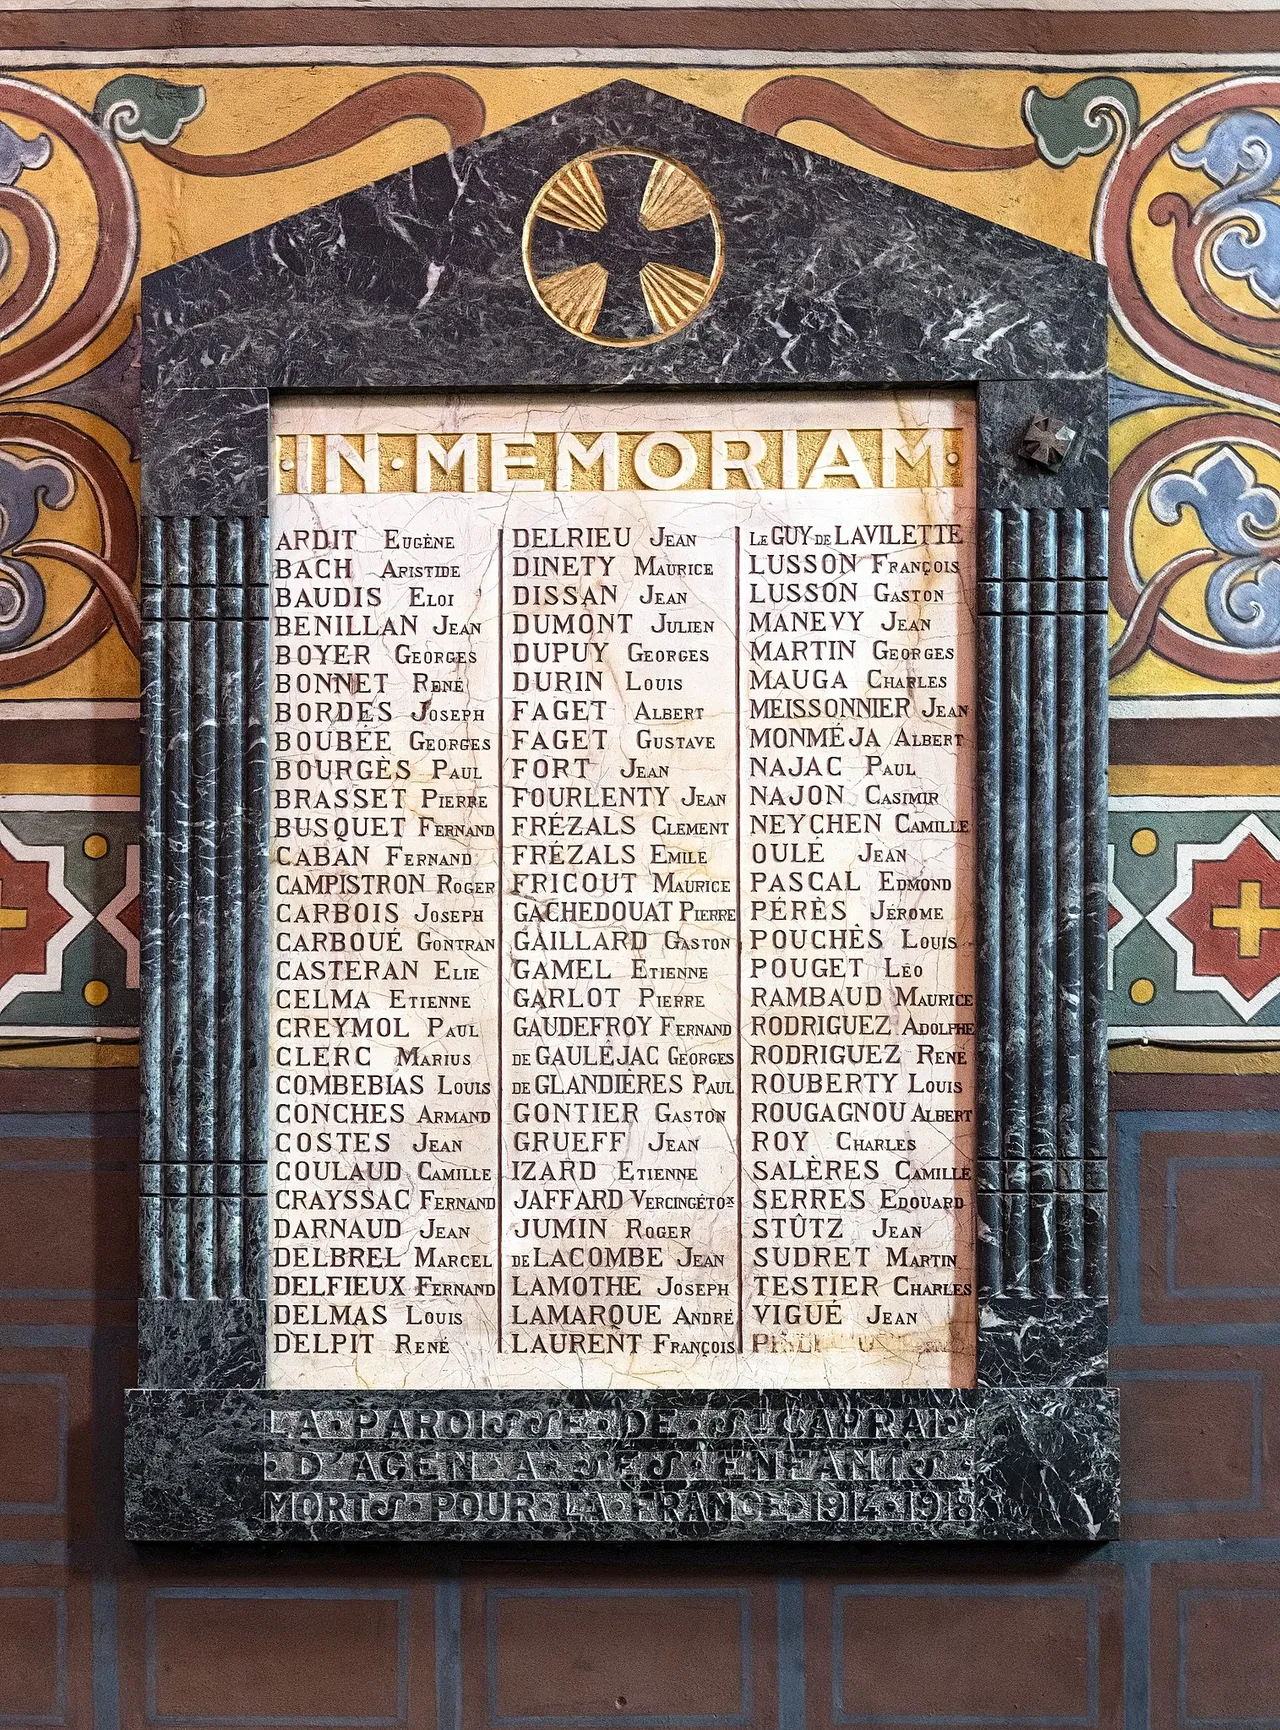 ·IN·MEMORIAM·
ARDIT Eugène
BACH Aristide
BAUDIS Eloi
BENILLAN Jean
BOYER Georges
BONNET René
BORDES Joseph
BOUBÉE Georges
BOURGÈS Paul
BRASSET Pierre
BUSQUET Fernand
CABAN Fernand
CAMPISTRON Roger
CARBOIS Joseph
CARBOUÉ Gontran
CASTERAN Elie
CELMA Etienne
CREYMOL Paul
CLERC Marius
COMBEBIAS Louis
CONCHES Armand
COSTES Jean
COULAUD Camille
CRAYSSAC Fernand
DARNAUD Jean
DELBREL Marcel
DELFIEUX Fernand
DELMAS Louis
DELPIT René
DELRIEU Jean
DINETY Maurice
DISSAN Jean
DUMONT Julien
DUPUY Georges
DURIN Louis
FAGET Albert
FAGET Gustave
FORT Jean
FOURLENTY Jean
FRÉZALS Clement
FRÉZALS Emile
FRICOUT Maurice
GACHEDOUAT Pierre
GAILLARD Gaston
GAMEL Etienne
GARLOT Pierre
GAUDEFROY Fernand
de GAULÉJAC Georges
de GLANDIÈRES Paul
GONTIER Gaston
GRUEFF Jean
IZARD Etienne
JAFFARD Vercingétox
JUMIN Roger
de LACOMBE Jean
LAMOTHE Joseph
LAMARQUE André
LAURENT François
Le GUY de LAVILETTE
LUSSON François
LUSSON Gaston
MANEVY Jean
MARTIN Georges
MAUGA Charles
MEISSONNIER Jean
MONMÉJA Albert
NAJAC Paul
NAJON Casimir
NEYCHEN Camille
OULÉ Jean
PASCAL Edmond
PÉRÈS Jérome
POUCHÈS Louis
POUGET Léo
RAMBAUD Maurice
RODRIGUEZ Adolphe
RODRIGUEZ René
ROUBERTY Louis
ROUGAGNOU Albert
ROY Charles
SALÈRES Camille
SERRES Edouard
STÛTZ Jean
SUDRET Martin
TESTIER Charles
VIGUÉ Jean
LA·PAROISSE·DE·St·CAPRAIS
·D'AGEN·A·SES·ENFANTS·
MORTS·POUR·LA·FRANCE·1914·1918